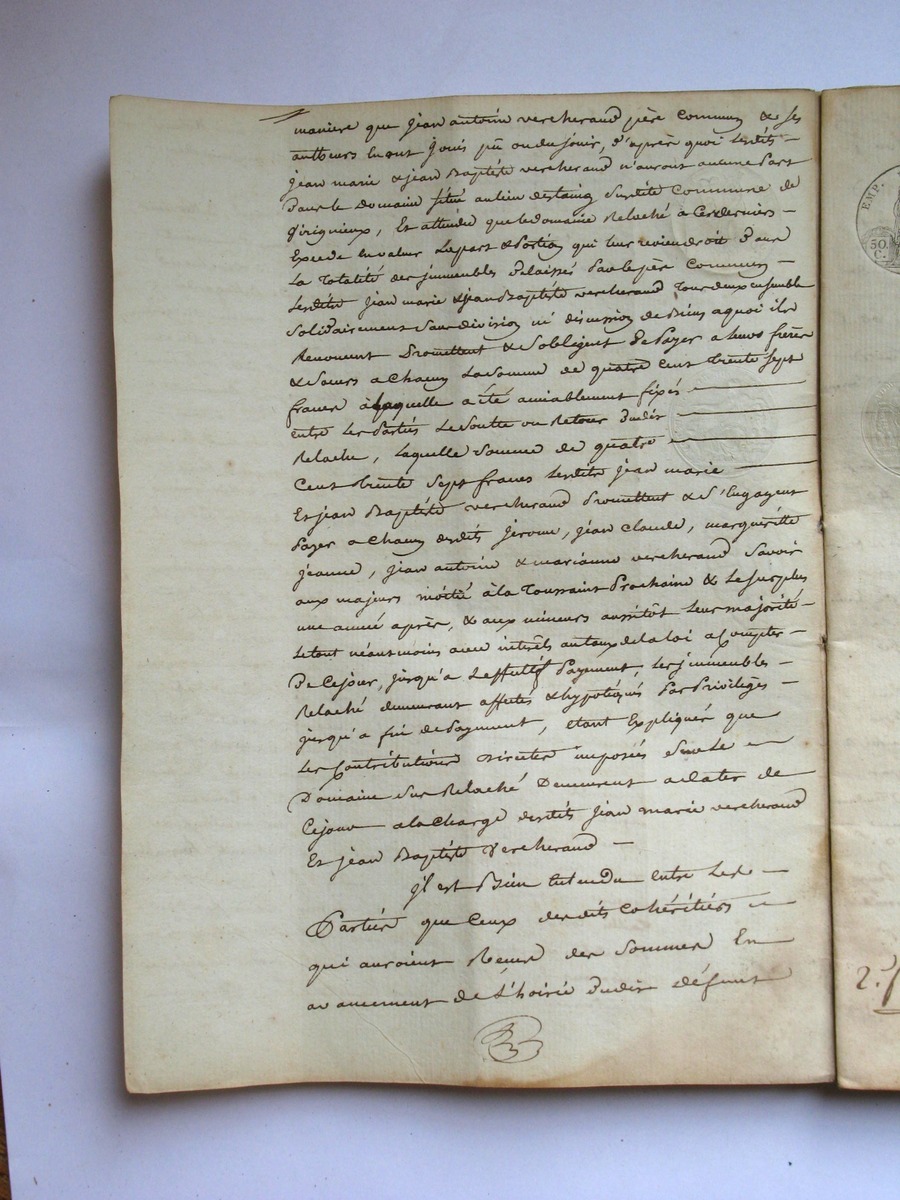 maniere que jean antoine vercherand père commun & ses
autheurs en ont jouis pû ou du jouir, d'après quoi lesdits
jean marie & jean Baptiste vercherand n'auront aucune Part
Dans le Domaine situé au lieu destaing susdite Commune de
d'irignieux, Et attendu que le domaine Relaché a Ces derniers
Excede en valeur La part & Portion qui leur reviendroit Dans
La Totalité des jmmeubles Delaissés Par le père Commun
Lesdits jean marie & jean Baptiste vercherand Tous deux ensemble
Solidairement Sans division ni discussion de Biens a quoi ils
Renoncent Promettent & S'obligent De Payer a leurs frères
& Soeurs a Chacun La Somme de quatre Cent trente Sept
francs à laquelle a été amiablement fixés
entre Les Parties Le Soulte ou Retour Dudit
Relache, laquelle Somme de quatre
Cent trente Sept francs lesdits jean marie
Et jean Baptiste vercherand Promettent & S'Engagent
Payer a Chacun desdits jérome, jean Claude, margueritte
jeanne, jean antoine & marianne vercherand Savoir
aux majeurs moitié à la Toussaint Prochaine & Le Surplus
une année après, & aux mineurs aussitôt Leur majorité
Le tout néantmoins avec intérêts au taux de la loi a Compter
De Ce jour, jusqu'a L'effectif Payement, Les jmmeubles
Relaché demeurant affectés & hypotéqués Par Privilèges
jusqu'a fin de Payment, étant Expliqués que
Les Contributions directes imposées Sur Le
Domaine Sus Relaché Demeurent a dater de
Ce jour a la Charge desdits jean marie vercherand
Et jean Baptiste Vercherand
jl est Bien Entendu Entre Les
Parties que Ceux desdits Cohéritiers
qui auroient Recus des Sommes En
avancement de L'hoirie Dudit défunt
EMP.
50
C.
2.